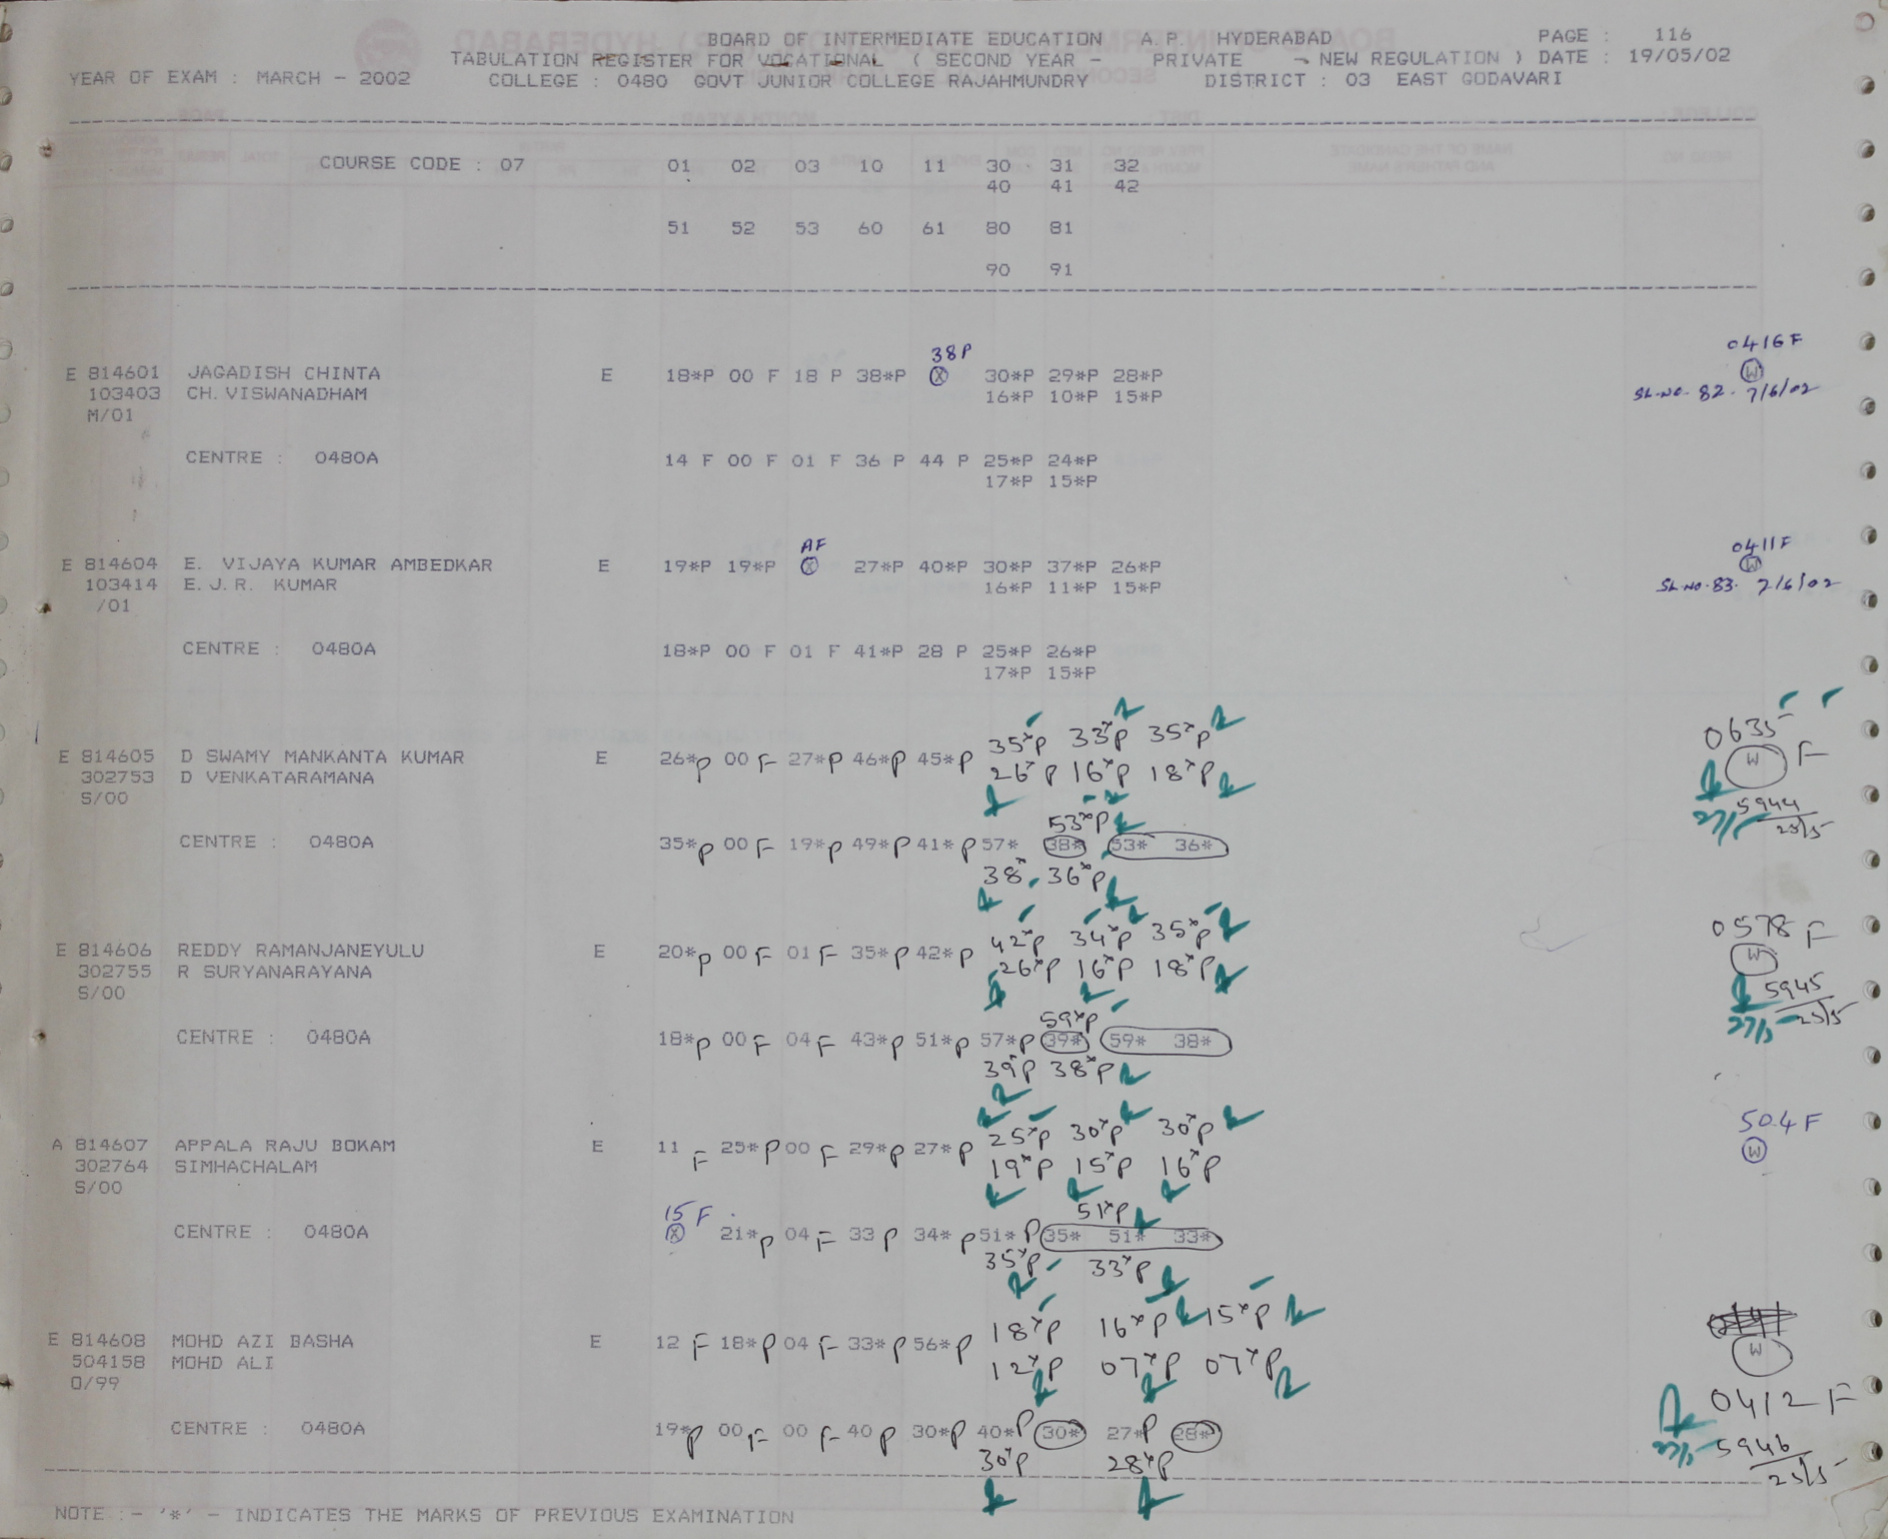 BOARD OF INTERMEDIATE EDUCATION A.P. HYDERABAD PAGE : 116
TABULATION REGISTER FOR VOCATIONAL ( SECOND YEAR - PRIVATE - NEW REGULATION ) DATE : 19/05/02
YEAR OF EXAM : MARCH - 2002 COLLEGE : 0480 GOVT JUNIOR COLLEGE RAJAHMUNDRY DISTRICT : 03 EAST GODAVARI
COURSE CODE : 07 01 02 03 10 11 30 31 32
40 41 42
51 52 53 60 61 80 81
90 91
38P 0416F
E 814601 JAGADISH CHINTA E 18*P 00 F 18 P 38*P X 30*P 29*P 28*P W
103403 CH.VISWANADHAM 16*P 10*P 15*P SL.NO. 82. 7/6/02
M/01
CENTRE : 0480A 14 F 00 F 01 F 36 P 44 P 25*P 24*P
17*P 15*P
AF 0411F
E 814604 E. VIJAYA KUMAR AMBEDKAR E 19*P 19*P X 27*P 40*P 30*P 37*P 26*P W
103414 E.J.R. KUMAR 16*P 11*P 15*P SL.NO.83. 7/6/02
/01
CENTRE : 0480A 18*P 00 F 01 F 41*P 28 P 25*P 26*P
17*P 15*P
35*P 33*P 35*P 0635
E 814605 D SWAMY MANKANTA KUMAR E 26*P 00 F 27*P 46*P 45*P W F
302753 D VENKATARAMANA 26*P 16*P 18*P
S/00 5944
53*P 27/5 25/5
CENTRE : 0480A 35*P 00 F 19*P 49*P 41*P 57* 38* 53* 36*
38* 36*P
42*P 34*P 35*P 0578 F
E 814606 REDDY RAMANJANEYULU E 20*P 00 F 01 F 35*P 42*P W
302755 R SURYANARAYANA 26*P 16*P 18*P
S/00 5945
59*P 27/5 25/5
CENTRE : 0480A 18*P 00 F 04 F 43*P 51*P 57*P 39* 59* 38*
39*P 38*P
25*P 30*P 30*P 504 F
A 814607 APPALA RAJU BOKAM E 11 F 25*P 00 F 29*P 27*P W
302764 SIMHACHALAM 19*P 15*P 16*P
S/00
15 F 51*P
CENTRE : 0480A X 21*P 04 F 33 P 34*P 51*P 35* 51* 33*
35*P 33*P
18*P 16*P 15*P
E 814608 MOHD AZI BASHA E 12 F 18*P 04 F 33*P 56*P W
504158 MOHD ALI 12*P 07*P 07*P
O/99 0412 F
CENTRE : 0480A 19*P 00 F 00 F 40 P 30*P 40*P 30* 27*P 28*
30*P 28*P 5946
25/5
NOTE :- '*' - INDICATES THE MARKS OF PREVIOUS EXAMINATION